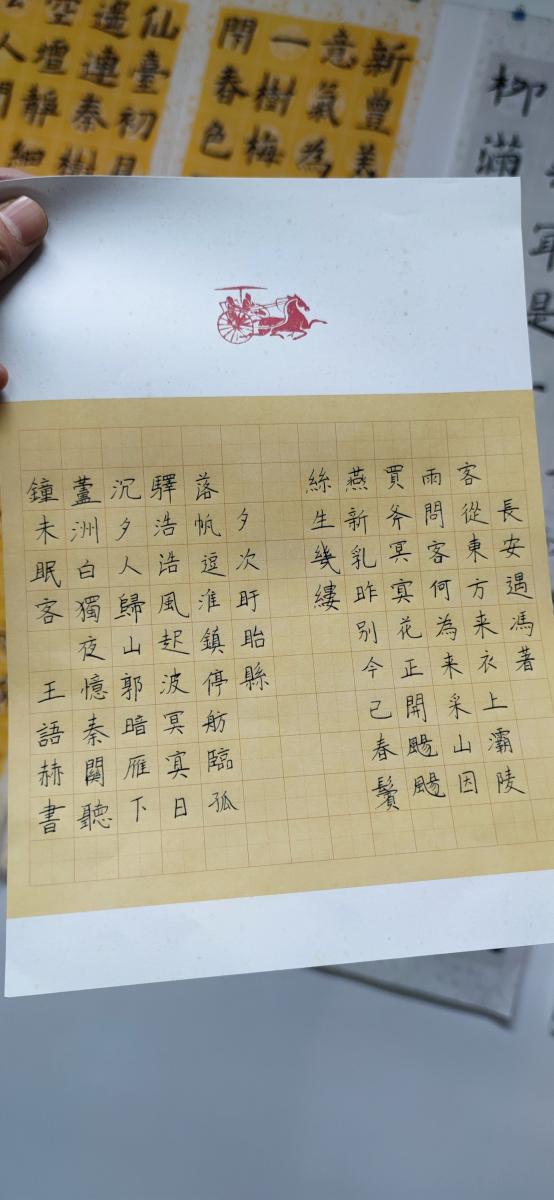 新豐美
意氣為
一樹梅
開春色
仙臺初見
遙連秦樹
空壇靜細
人門
柳滿
年是一
長安遇馮著
客從東方来衣上灞陵
雨問客何為来采山因
買斧冥㝠花正開颺颺
燕新乳昨别今己春鬢
絲生幾縷
夕次盱眙縣
落帆逗淮鎮停舫臨孤
驛浩浩風起波冥㝠日
沉夕人歸山郭暗雁下
蘆洲白獨夜憶秦關聽
鐘未眠客 王語赫書